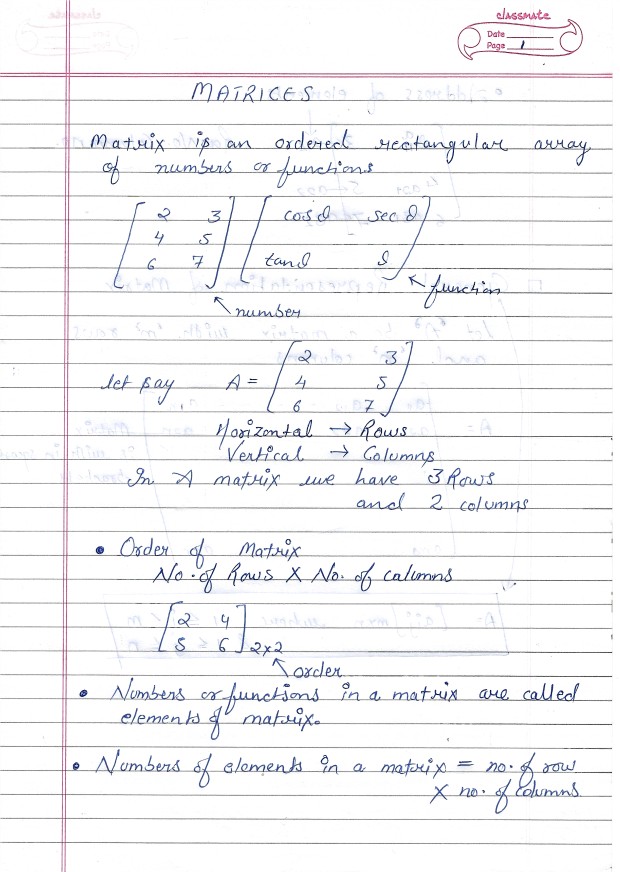 classmate
Date
Page 1
MATRICES
Matrix is an ordered rectangular array
of numbers or functions
[2 3
4 5
6 7] [cosθ secθ
tanθ θ]
function
number
let say A = [2 3
4 5
6 7]
Horizontal → Rows
Vertical → Columns
In A matrix we have 3 Rows
and 2 columns
• Order of Matrix
No. of Rows X No. of calumns
[2 4
5 6] 2x2
order
• Numbers or functions in a matrix are called
elements of matrix.
• Numbers of elements in a matrix = no. of row
X no. of columns